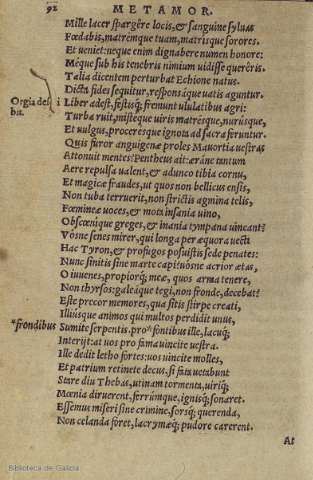 92 METAMOR.
Mille lacer spargêre locis, & sanguine syluas
Fœdabis, matremque tuam, matrisque sorores.
Et ueniet: neque enim dignabere numen honore:
Méque sub his tenebris nimium uidisse quereris.
Talia dicentem perturbat Echione natus.
Dicta fides sequitur, responsáque uatis aguntur.
Orgia de- i Liber adest, festisq́; fremunt ululatibus agri:
Turba ruit, mistǽque uiris matrésque, nurúsque,
Et uulgus, procerésque ignota ad sacra feruntur.
Quis furor anguigenæ proles Mauortia uestras
Attonuit mentes? Pentheus ait: æráne tantum
Aere repulsa ualent, & adunco tibia cornu,
Et magicæ fraudes, ut quos non bellicus ensis,
Non tuba terruerit, non strictis agmina telis,
Fœmineæ uoces, & mota insania uino,
Obscœnique greges, & inania tympana uincant?
Vósne senes mirer, qui longa per æquora uecti
Hac Tyron, & profugos posuistis sede penates:
Nunc sinitis sine marte capi? uósne acrior ætas,
O iuuenes, propiorq́; meæ, quos arma tenere,
Non thyrsos: galeáque tegi, non fronde, decebat?
Este precor memores, qua sitis stirpe creati,
Illiúsque animos qui multos perdidit unus,
*frondibus Sumite serpentis. pro* fontibus ille, lacuq́;
Interijt: at uos pro fama uincite uestra.
Ille dedit letho fortes: uos uincite molles,
Et patrium retinete decus. si fata uetabunt
Stare diu Thebas, utinam tormenta, uiriq́;
Mœnia diruerent, ferrúmque, ignisq́; sonaret.
Essemus miseri sine crimine, sorsq́; querenda,
Non celanda foret, lacrymæq́; pudore carerent.
At
Biblioteca de Galicia